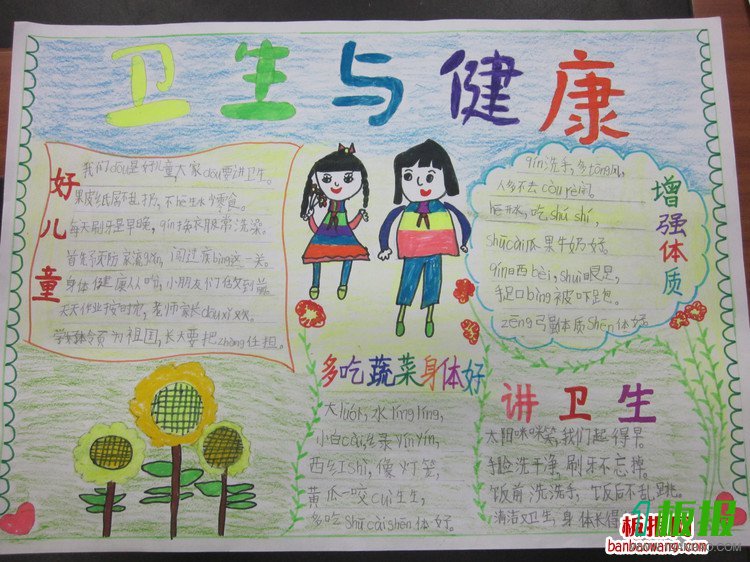 卫生与健康
好儿童
我们dōu是好儿童,大家dōu要讲卫生。
果皮纸屑不乱扔,不hē生水 零食。
每天刷牙是早晚,qín换衣服常洗澡。
首先预防 ,闯过疾bìng这一关。
身体健康人人夸,小朋友们 做到
天天作业按时完,老师家长dōu xǐ欢。
为祖国,长大要把zhòng任担。
增强体质
qín洗手,多tōng风,
人多不去còu rè闹。
hē开水,吃shú shí,
shū cài瓜果牛奶好。
qín晒 bèi,shuì眠足,
bìng被吓跑。
zēng强体质shēn体好。
多吃蔬菜身体好
大luó卜,水líng líng,
小白cài,绿yīn yīn,
西红shì,像灯笼,
黄瓜一咬cuì生生,
多吃shū cài shēn体好。
讲卫生
太阳咪咪笑,我们起得早。
手脸洗干净,刷牙不忘掉。
饭前洗洗手,饭后不乱跳。
清洁又卫生,身体长得
板报网
banbaowang.com
板报